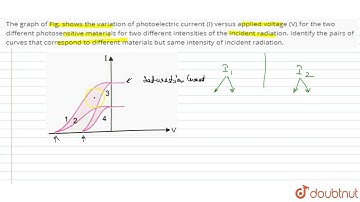 The graph of Fig. shows the variation of photoelectric current (I) versus applied voltage (V) for the two
different photosensitive materials for two different intensities of the incident radiation. Identify the pairs of
curves that correspond to different materials but same intensity of incident radiation.
I
Saturation Current
I1
I2
3
1
2
4
V
doubtnut